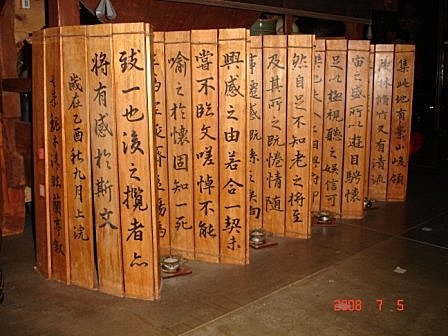 集此地有崇山峻領
林脩竹又有清流
之盛所以遊目騁懷
足以極視聽之娛信可
然自足不知老之將至
及其所之既惓情隨
興感之由若合一契未
嘗不臨文嗟悼不能
喻之於懷固知一死
致一也後之攬者亦
將有感於斯文
歲在乙酉秋九月上浣
臨蘭亭敘
2008 7 5